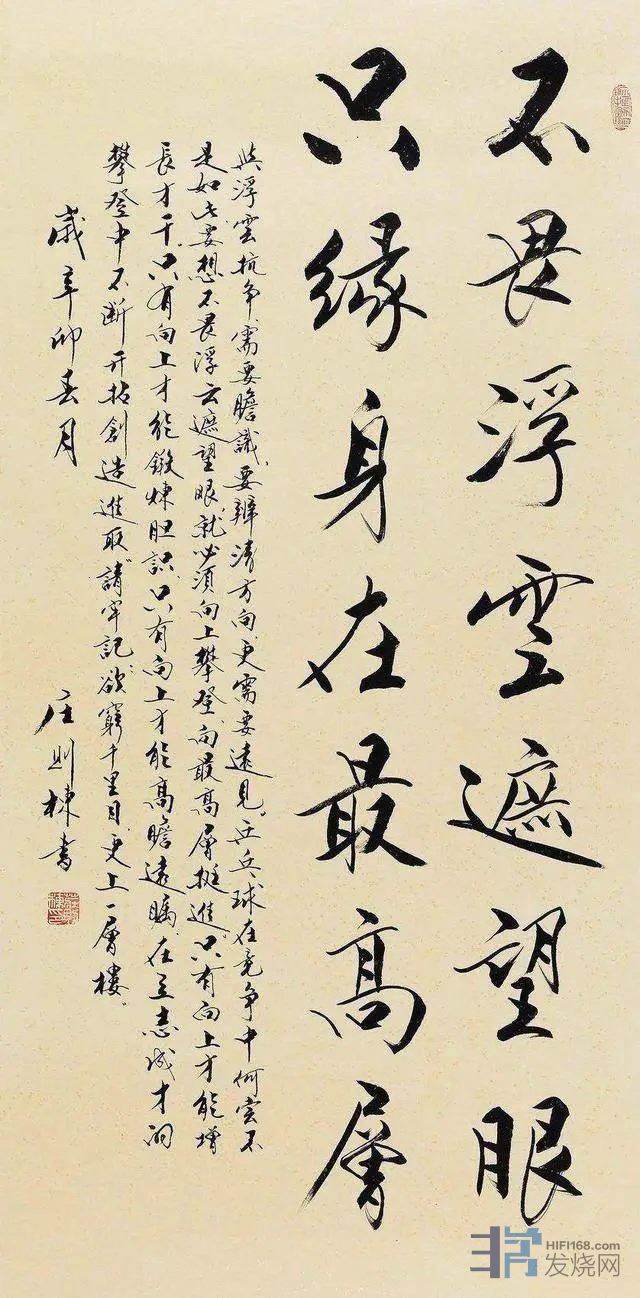 不畏浮雲遮望眼
只緣身在最高層
與浮雲抗争,需要瞻識,要辨清方向,更需要遠見。乒乓球在竞争中何尝不
是如此,要想不畏浮云遮望眼,就必須向上攀登,向最高層挺進,只有向上才能增
長才干,只有向上才能鍛煉胆識,只有向上才能高瞻遠瞩,在立志成才的
攀登中不断开拓創造進取,請牢記,欲窮千里目,更上一層樓。
歲辛卯春月
庄则栋書
HIFI168.com
发烧网